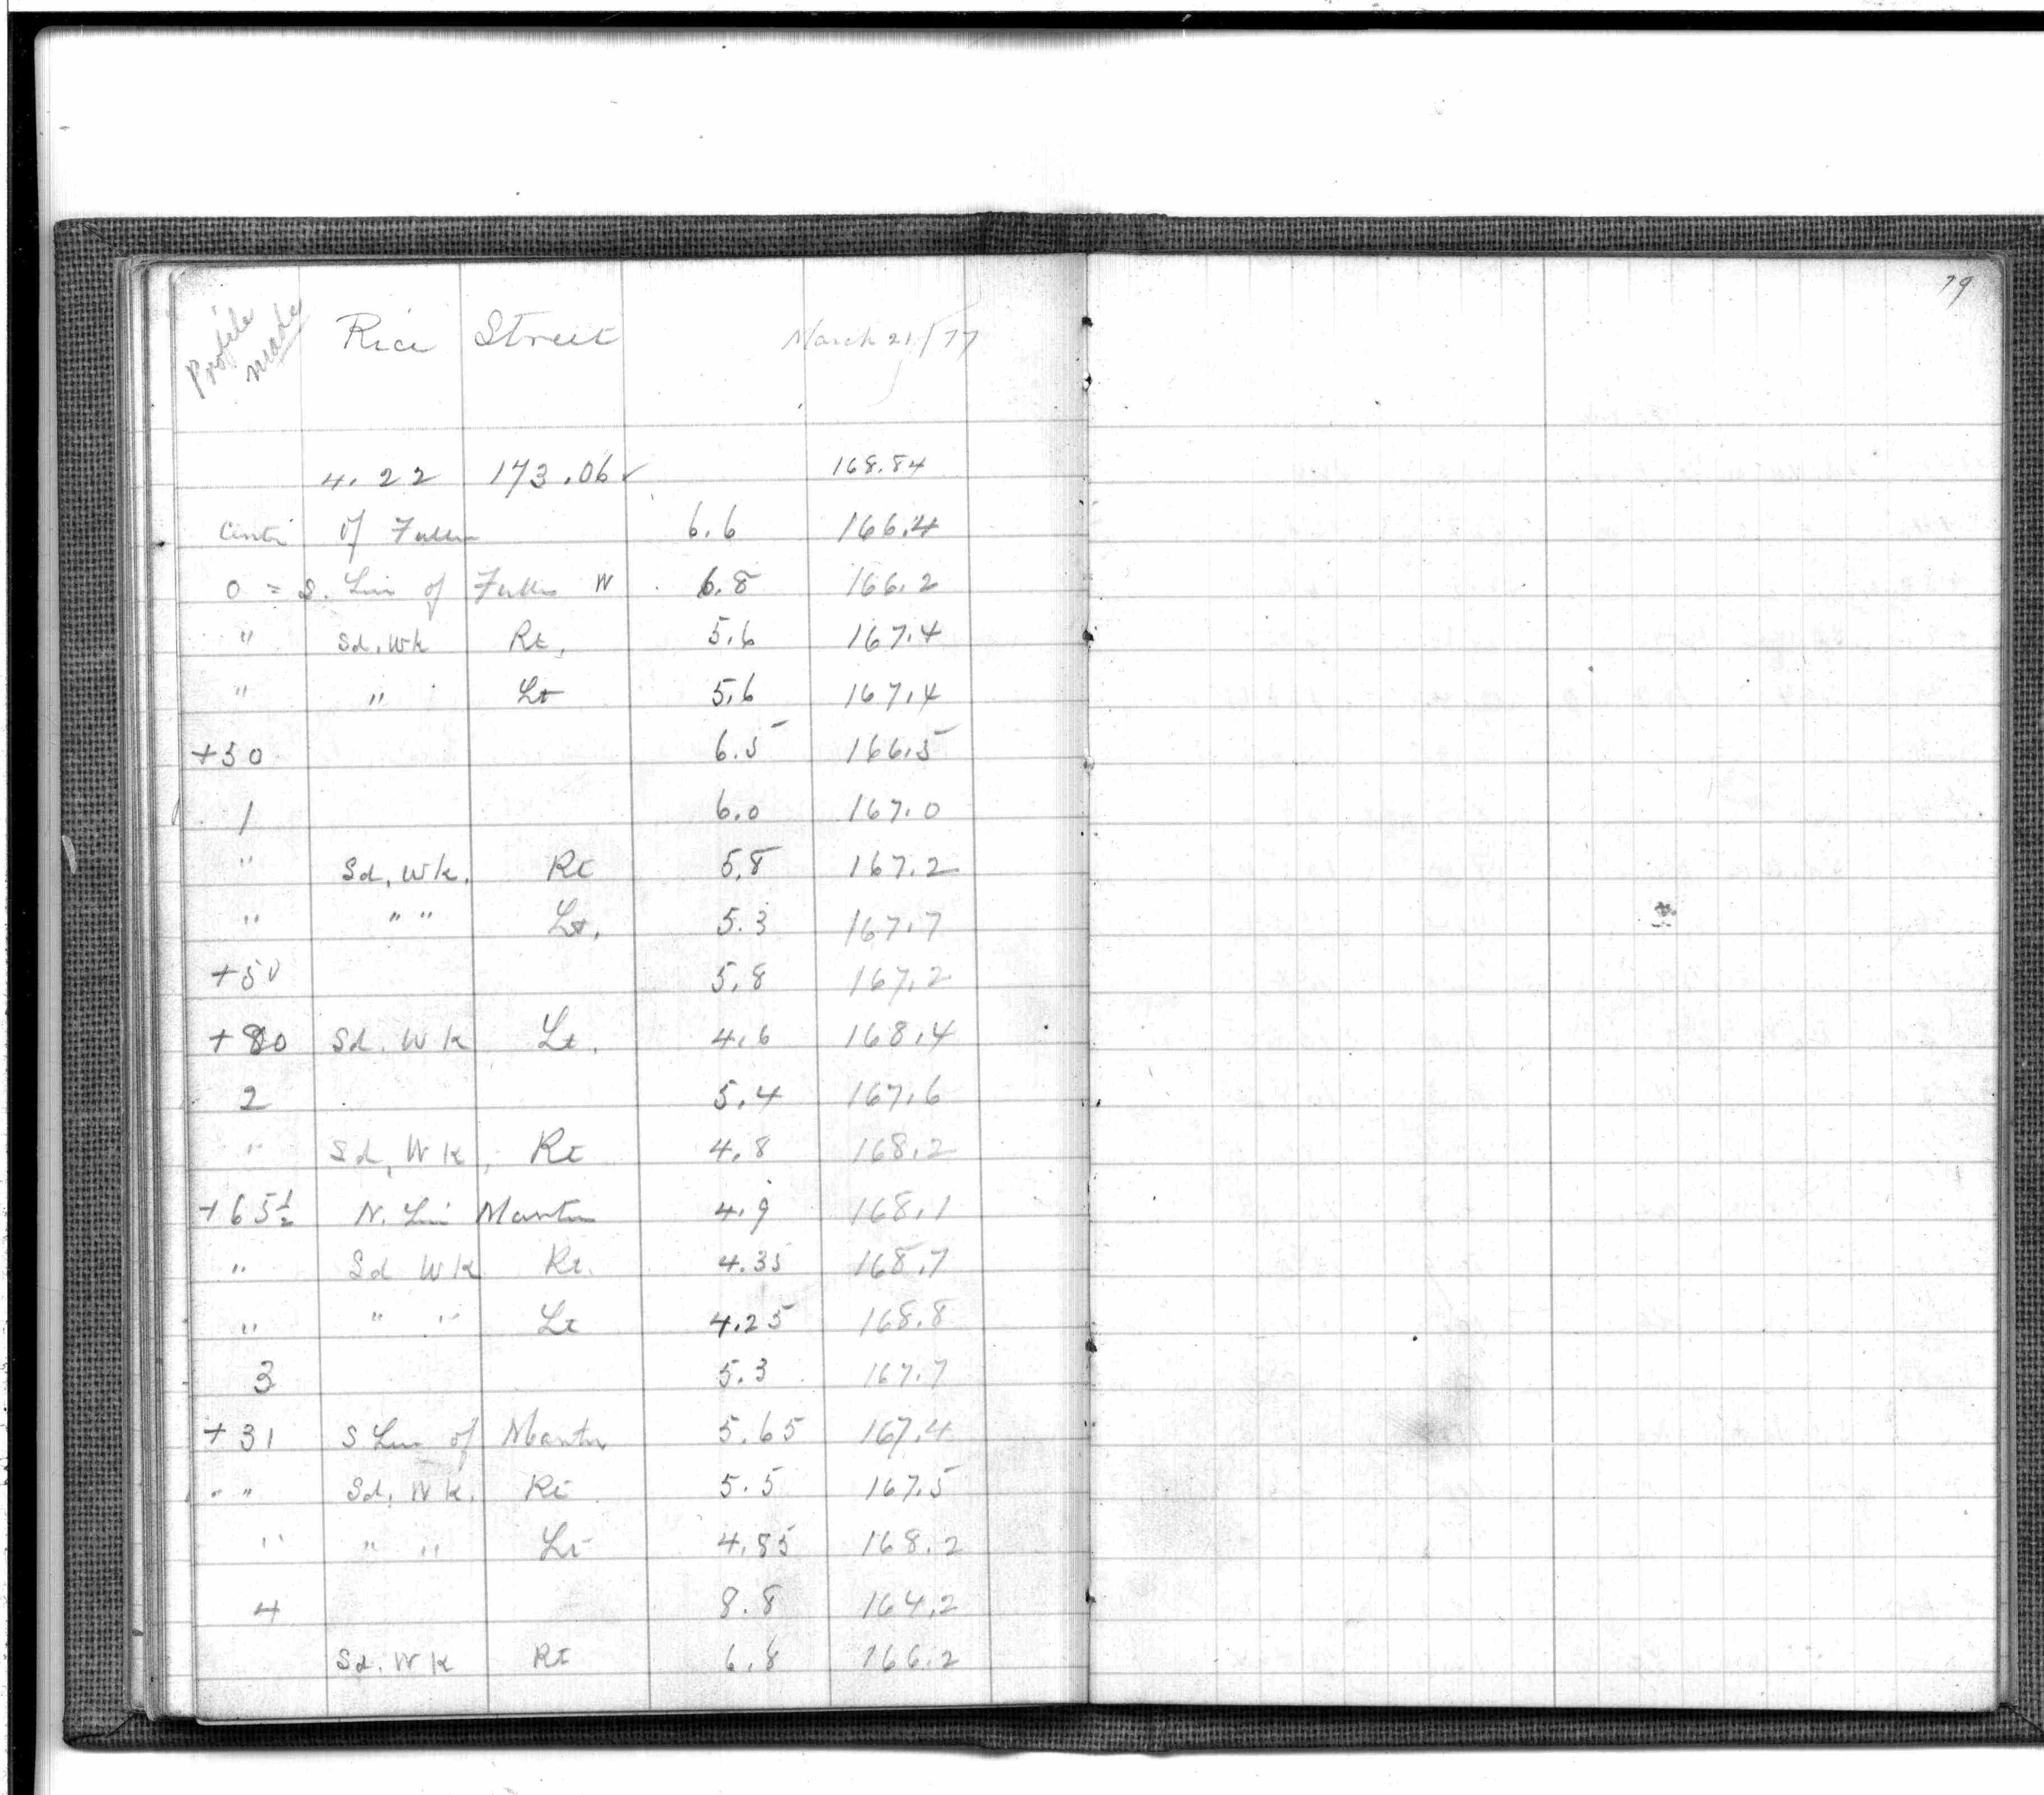 Profile made
Rice Street March 21/77
79
4.22 173.06 ✓ 168.84
Cente of Fuller 6.6 166.4
0 = S. Line of Fuller W 6.8 166.2
" Sd. Wk Rt. 5.6 167.4
" " Lt 5.6 167.4
+50 6.5 166.5
1 6.0 167.0
" Sd. Wk. Rt 5.8 167.2
" " " Lt. 5.3 167.7
+50 5.8 167.2
+80 Sd. Wk Lt. 4.6 168.4
2 5.4 167.6
" Sd. Wk. Rt 4.8 168.2
+65½ N. Line Martin 4.9 168.1
" Sd Wk Rt. 4.35 168.7
" " " Lt 4.25 168.8
3 5.3 167.7
+31 S Line of Martin 5.65 167.4
" " Sd. Wk. Rt 5.5 167.5
" " " Lt 4.85 168.2
4 8.8 164.2
Sd. Wk Rt 6.8 166.2